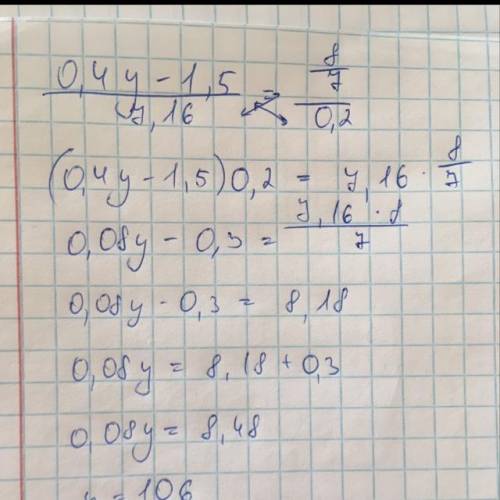 (0,4y - 1,5) / 7,16 = (8/7) / 0,2
(0,4y - 1,5) 0,2 = 7,16 · 8/7
0,08y - 0,3 = (7,16 · 8) / 7
0,08y - 0,3 = 8,18
0,08y = 8,18 + 0,3
0,08y = 8,48
y = 106